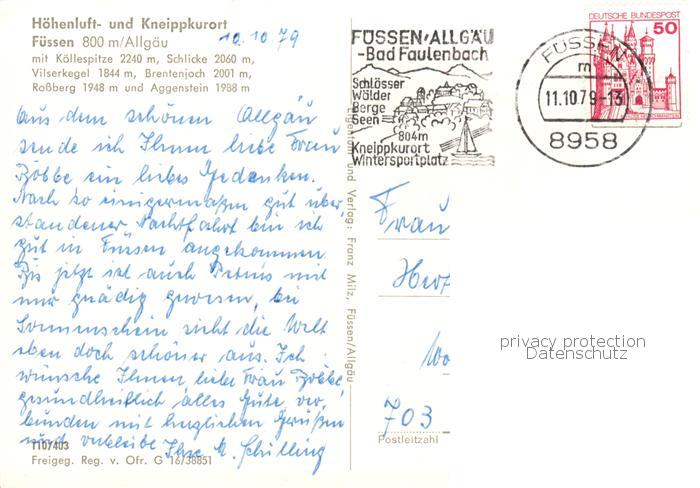 Höhenluft- und Kneippkurort
Füssen 800 m/Allgäu
mit Köllespitze 2240 m, Schlicke 2060 m,
Vilserkegel 1844 m, Brentenjoch 2001 m,
Roßberg 1948 m und Aggenstein 1988 m
10.10.79
Aus dem schönen Allgäu
sende ich Ihnen liebe Frau
Többe ein liebes Gedenken.
Nach so einigermaßen gut über
standener Nachtfahrt bin ich
gut in Füssen angekommen.
Bis jetzt ist auch Petrus mit
mir gnädig gewesen, bei
Sonnenschein sieht die Welt
eben doch schöner aus. Ich
wünsche Ihnen, liebe Frau Többe,
gesundheitlich alles Gute, ver,
bunden mit herzlichen Grüßen
und verbleibe Ihre A. Schilling
1107403
Freigeg. Reg. v. Ofr. G 16/38851
und Verlag: Franz Milz, Füssen/Allgäu
FÜSSEN/ALLGÄU
-Bad Faulenbach
Schlösser
Wälder
Berge
Seen
804m
Kneippkurort
Wintersportplatz
DEUTSCHE BUNDESPOST
50
FÜSSEN
m
11.10.79-13
8958
Frau
Her
Wo
703
Postleitzahl
privacy protection
Datenschutz